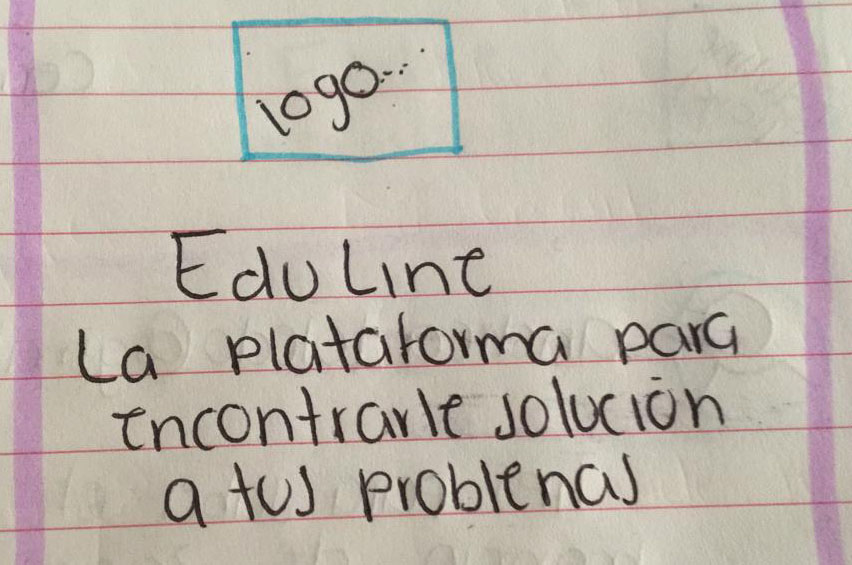 logo...
EduLine
La plataforma para
encontrarle solución
a tus problenas